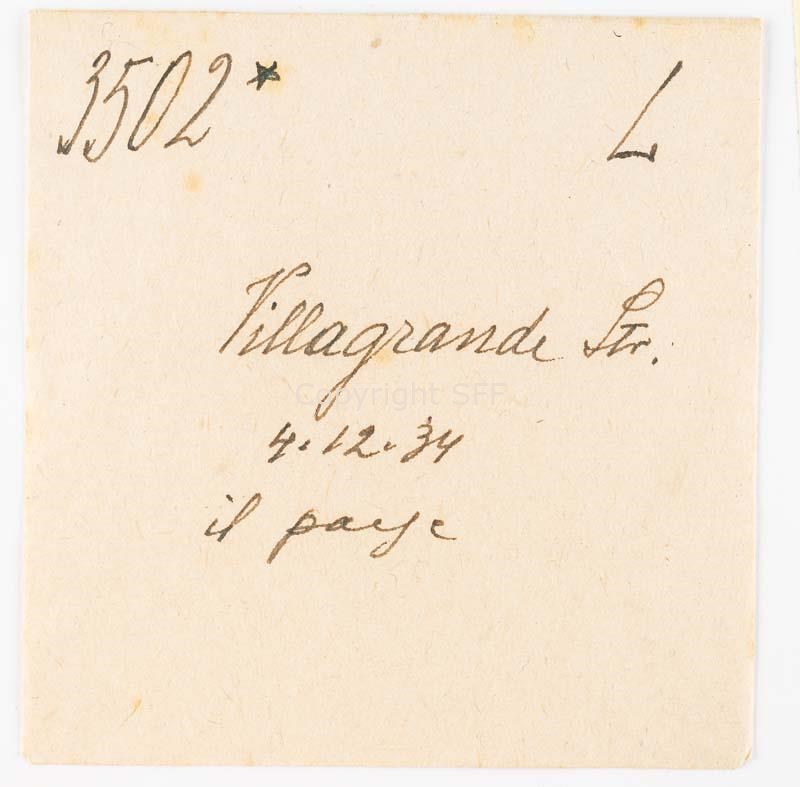 3502* L
Villagrande Str.
Copyright SFP
4.12.34
il paese